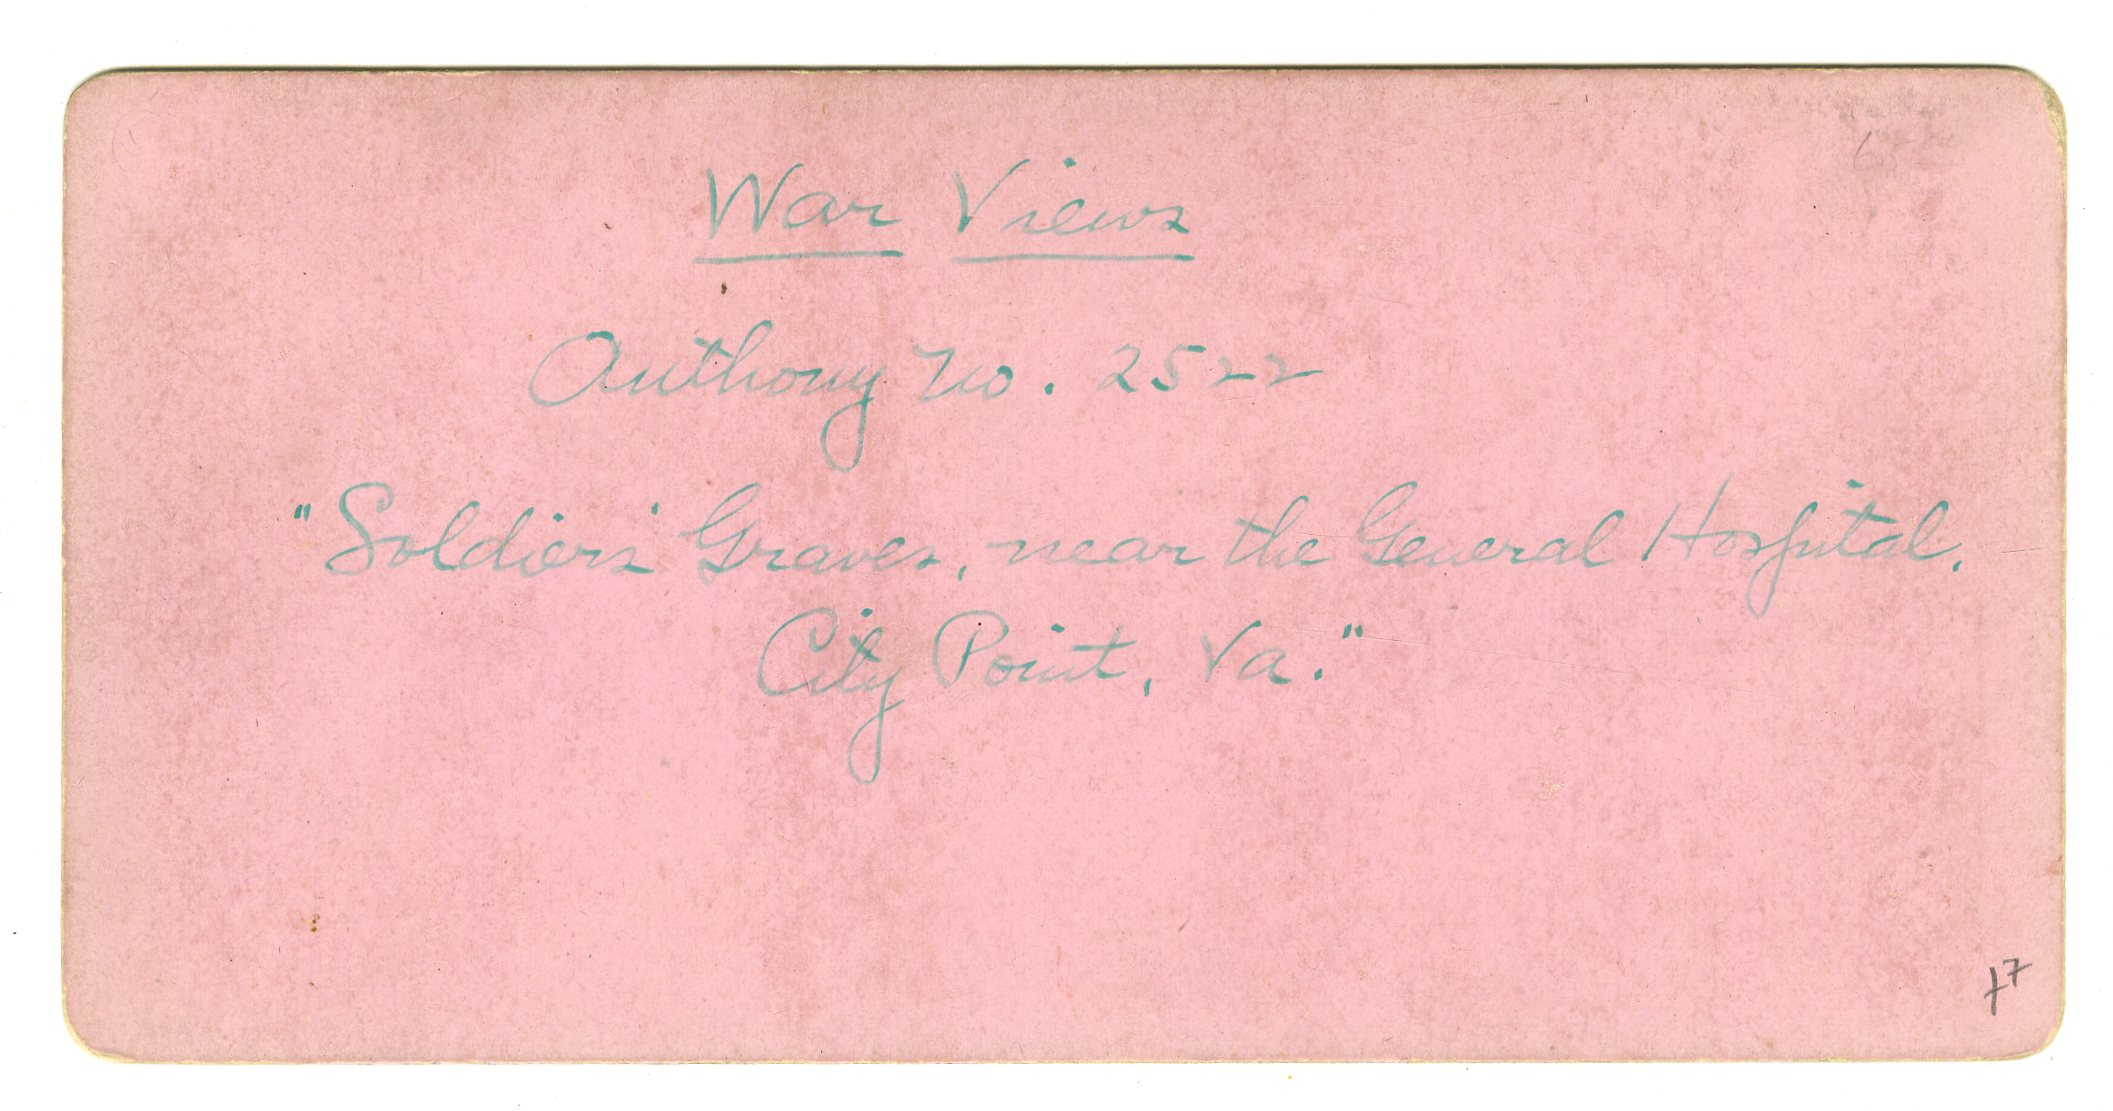 War Views
Anthony No. 2522
"Soldiers' Graves, near the General Hospital,
City Point, Va."